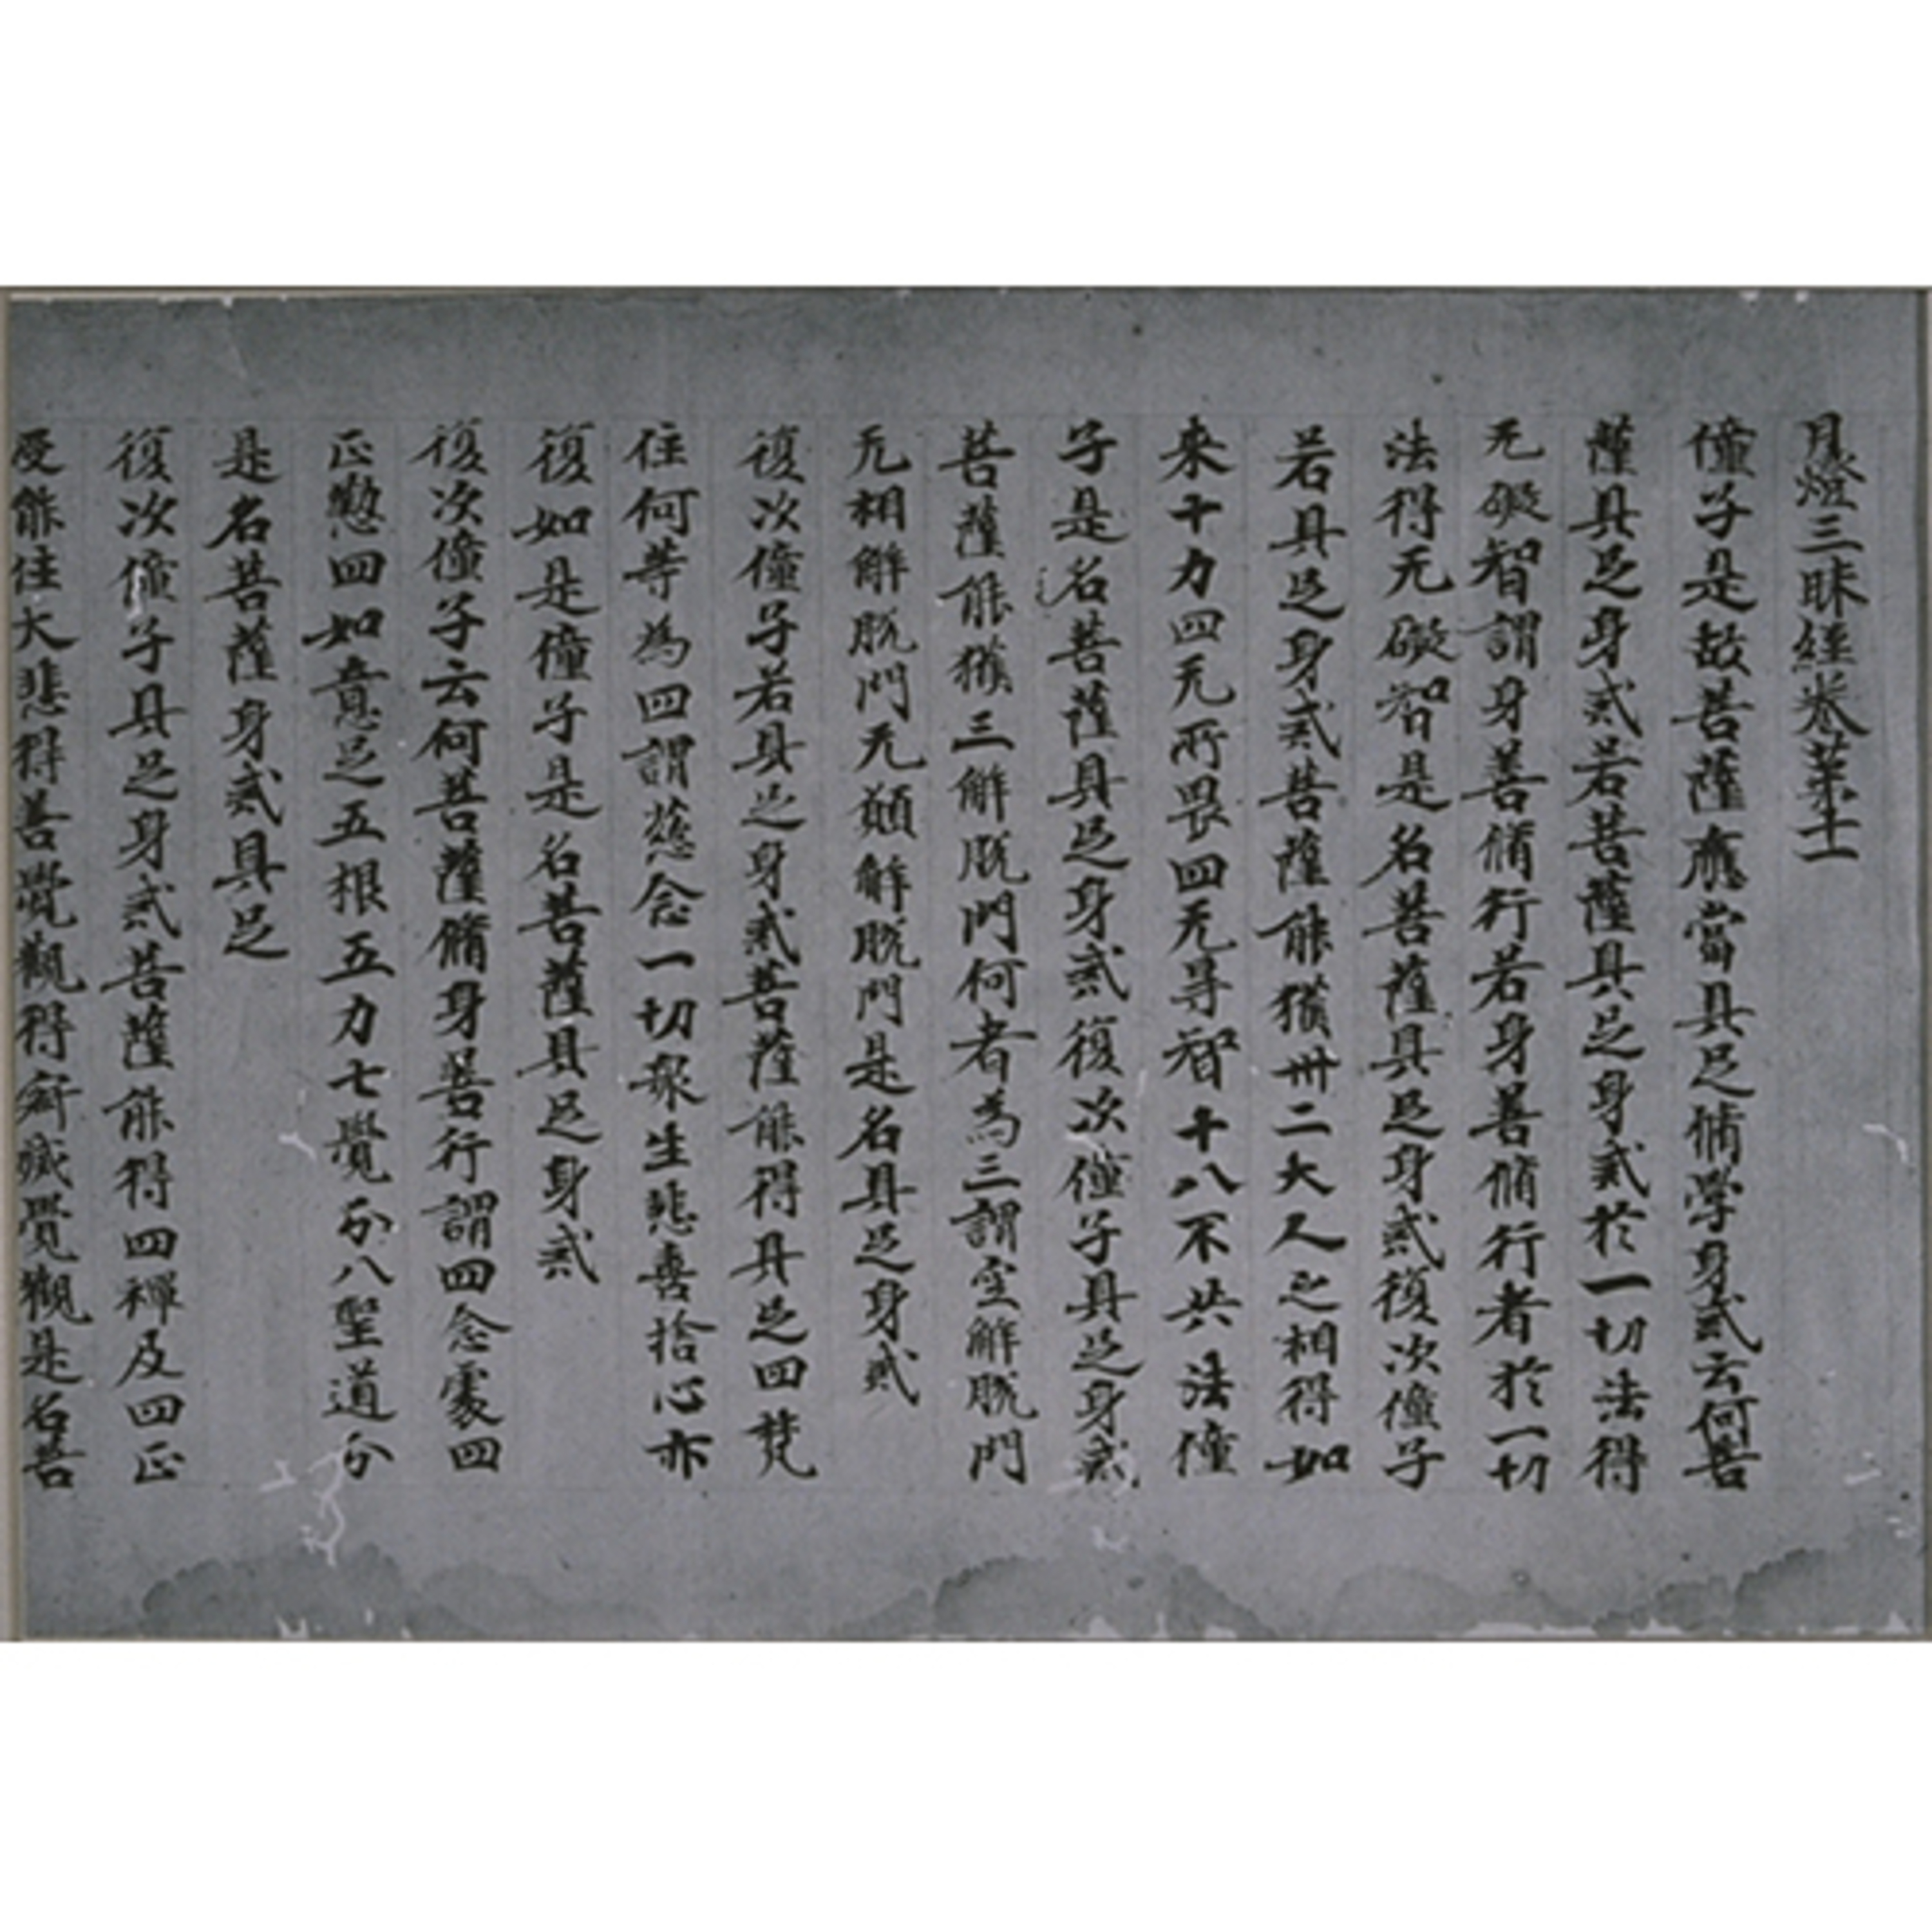 月燈三昧經卷苐十一
僮子是故菩薩應當具足脩學身貳云何菩
薩具足身貳若菩薩具足身貳於一切法得
无礙智謂身善脩行若身善脩行者於一切
法得无礙智是名菩薩具足身貳復次僮子
若具足身貳菩薩能獲卅二大人之相得如
来十力四无所畏四无等智十八不共法僮
子是名菩薩具足身貳復次僮子具足身貳
菩薩能獲三解脫門何者為三謂空解脫門
无相解脫門无願解脫門是名具足身貳
復次僮子若具足身貳菩薩能得具足四梵
住何等為四謂慈念一切衆生悲喜捨心亦
復如是僮子是名菩薩具足身貳
復次僮子云何菩薩脩身善行謂四念處四
正懃四如意足五根五力七覺分八聖道分
是名菩薩身貳具足
復次僮子具足身貳菩薩能得四禪及四正
受能住大悲得善覺觀得寂滅覺觀是名菩